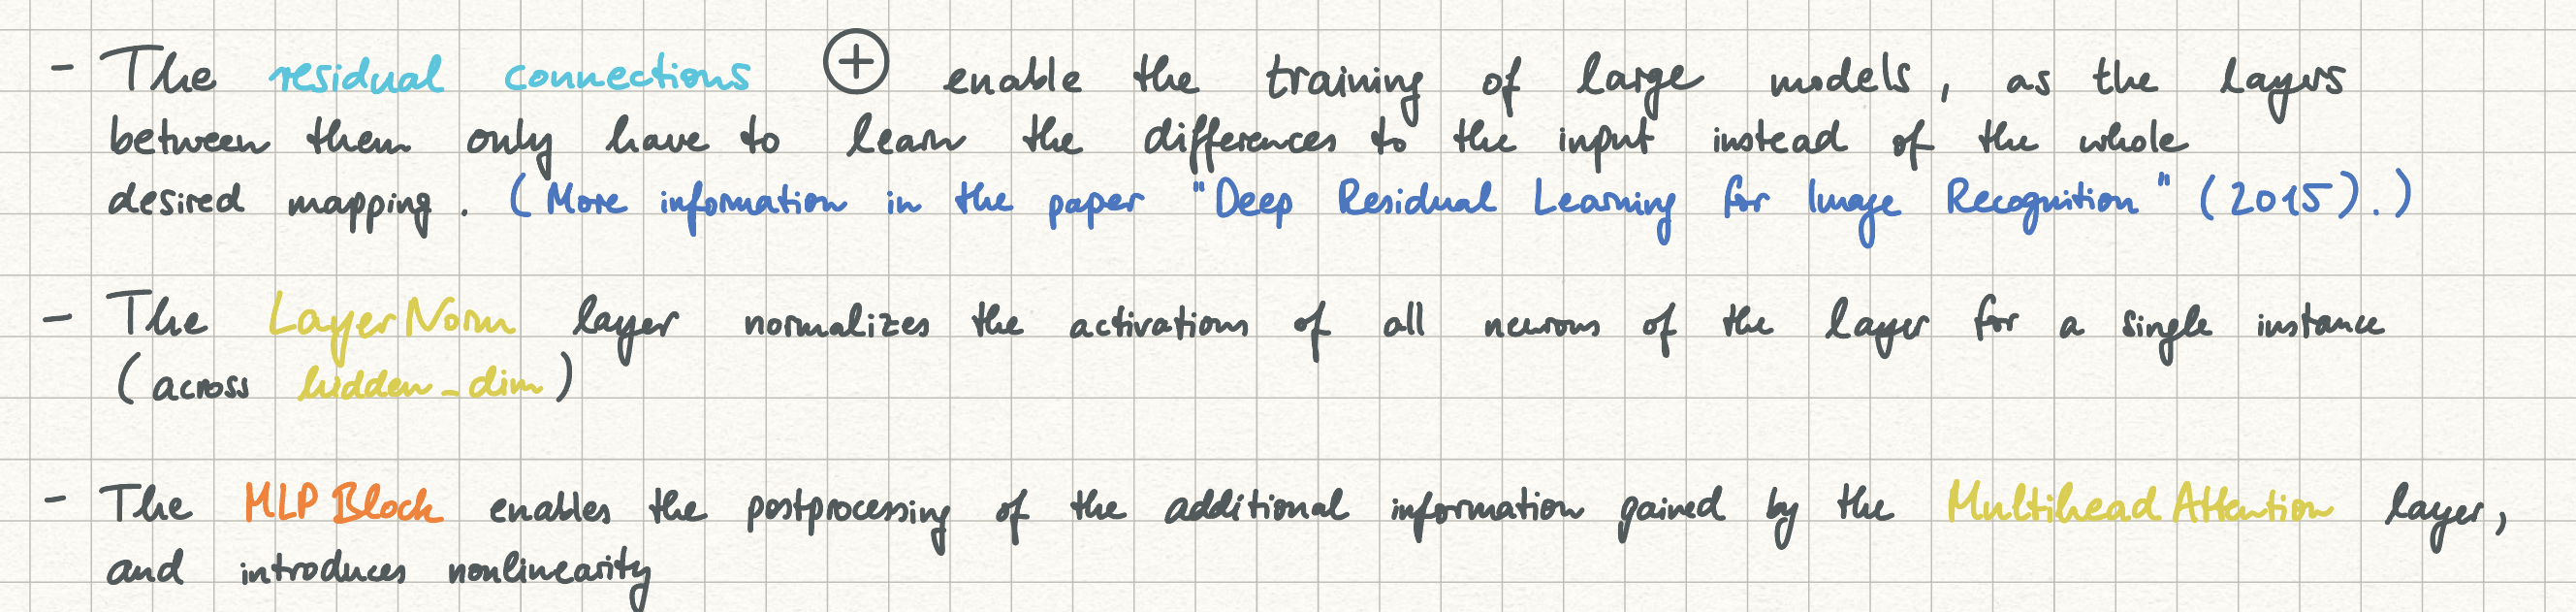 - The residual connections ⊕ enable the training of large models, as the layers
between them only have to learn the differences to the input instead of the whole
desired mapping. (More information in the paper "Deep Residual Learning for Image Recognition" (2015).)
- The LayerNorm layer normalizes the activations of all neurons of the layer for a single instance
(across hidden_dim)
- The MLPBlock enables the postprocessing of the additional information gained by the MultiheadAttention layer,
and introduces nonlinearity